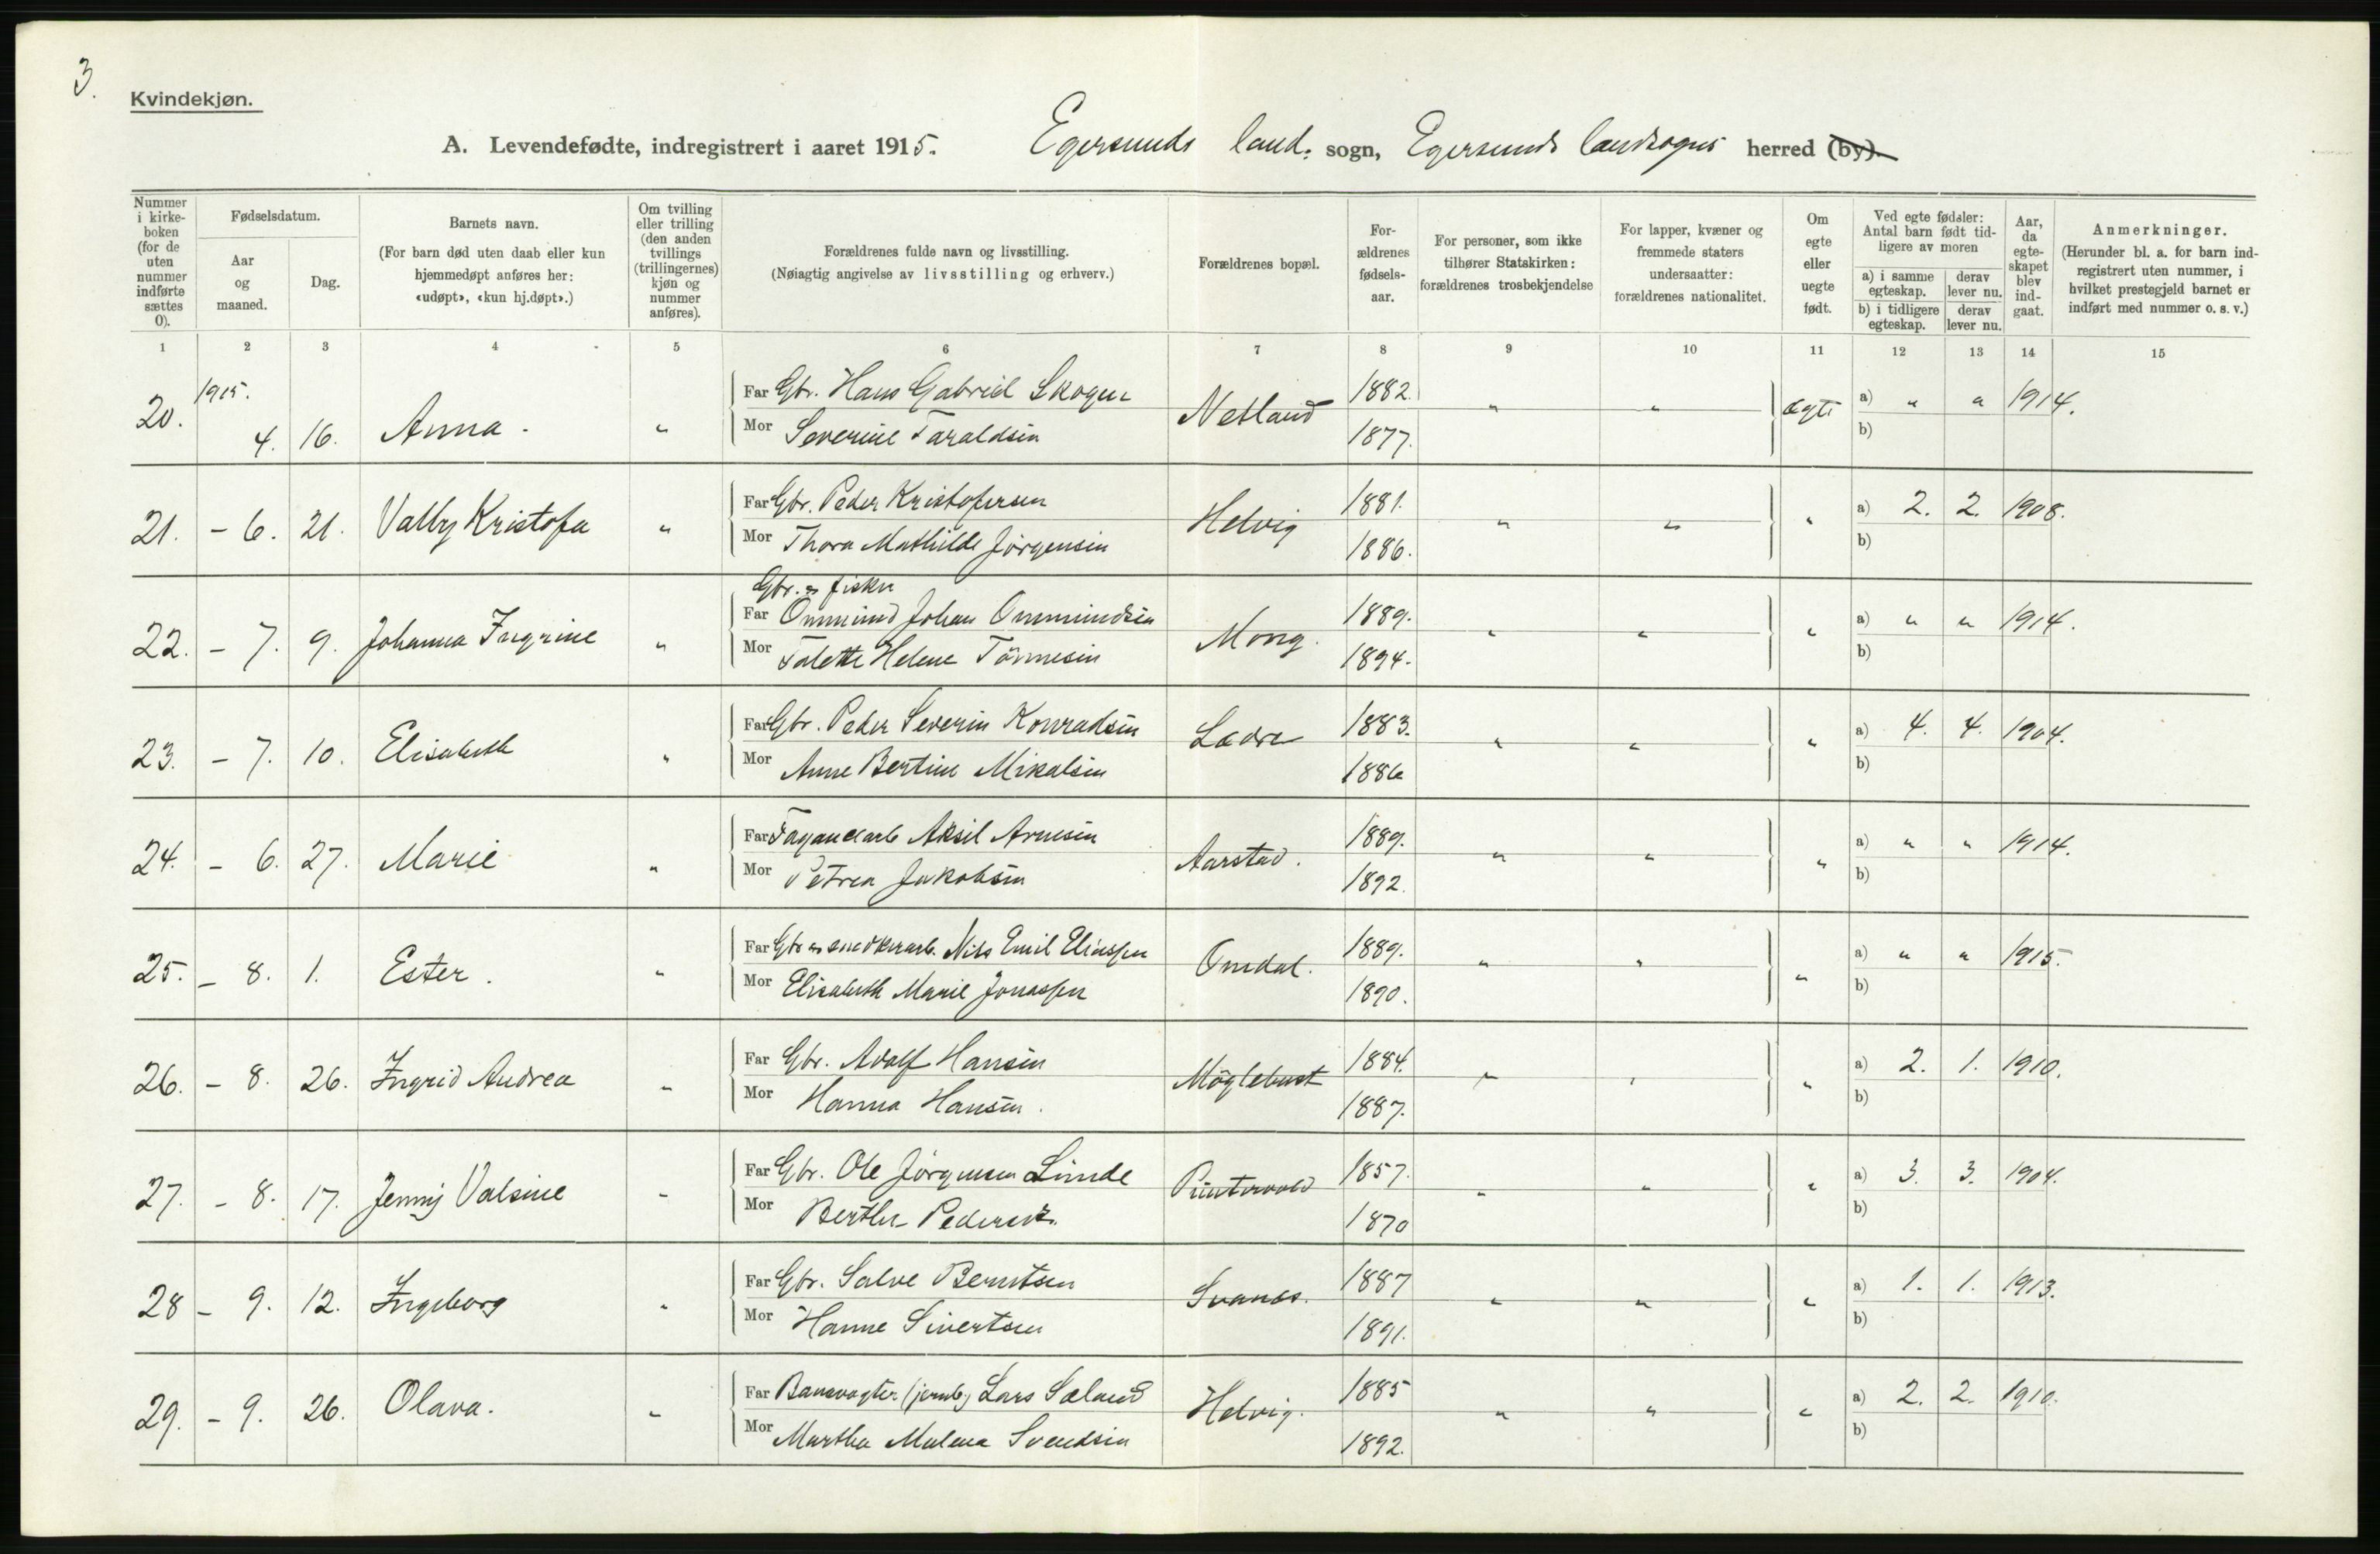 3.
Kvindekjøn.
A. Levendefødte, indregistrert i aaret 1915. Egersunds land. sogn, Egersunds landsogns herred (by).
Nummer i kirkeboken (for de uten nummer indførte sættes 0).
Fødselsdatum.
Aar og maaned.
Dag.
Barnets navn.
(For barn død uten daab eller kun hjemmedøpt anføres her: «udøpt», «kun hj.døpt».)
Om tvilling eller trilling (den anden tvillings (trillingernes) kjøn og nummer anføres).
Forældrenes fulde navn og livsstilling.
(Nøiagtig angivelse av livsstilling og erhverv.)
Forældrenes bopæl.
Forældrenes fødselsaar.
For personer, som ikke tilhører Statskirken: forældrenes trosbekjendelse
For lapper, kvæner og fremmede staters undersaatter: forældrenes nationalitet.
Om egte eller uegte født.
Ved egte fødsler: Antal barn født tidligere av moren
a) i samme egteskap. derav lever nu.
b) i tidligere egteskap. derav lever nu.
Aar, da egteskapet blev indgaat.
Anmerkninger.
(Herunder bl. a. for barn indregistrert uten nummer, i hvilket prestegjeld barnet er indført med nummer o. s. v.)
1 2 3 4 5 6 7 8 9 10 11 12 13 14 15
1915.
20. 4. 16. Anna. " Far Gbr. Hans Gabriel Skogen Netland 1882. " " ægte a) " " 1914.
Mor Severine Taraldsen 1877. b)
21. - 6. 21. Valby Kristofa " Far Gbr. Peder Kristofersen Helvig 1881. " " " a) 2. 2. 1908.
Mor Thora Mathilde Jörgensen 1886. b)
Gbr. & fisker
22. - 7. 9. Johanna Ingrine " Far Ommund Johan Ommundsen Mong. 1889. " " " a) " " 1914.
Mor Talette Helene Tönnesen 1894. b)
23. - 7. 10. Elisabeth " Far Gbr. Peder Severin Konradsen 1883. " " " a) 4. 4. 1904.
Mor Anne Bertine Mikalsen 1886 b)
24. - 6. 27. Marie " Far Aksel Arnesen Aarstad. 1889. " " " a) " " 1914.
Mor Petrea Jakobsen 1892. b)
25. - 8. 1. Ester. " Far Gbr & snedkerarb. Nils Emil Eliassen Omdal. 1889. " " " a) " " 1915.
Mor Elisabeth Marie Jonassen 1890. b)
26. - 8. 26. Ingrid Andrea " Far Gbr. Adolf Hansen Möglebust 1884. " " " a) 2. 1. 1910.
Mor Hanna Hansen. 1887. b)
27. - 8. 17. Jenny Valsine " Far Gbr. Ole Jörgensen Linde 1857. " " " a) 3. 3. 1904.
Mor Berthe Pedersen. 1870 b)
28 - 9. 12. Ingeborg " Far Gbr. Salve Berntsen Svanes. 1887 " " " a) 1. 1. 1913.
Mor Hanne Sivertsen 1891. b)
29. - 9. 26. Olava. " Far Banevogter (jernb.) Lars Sæland Helvig. 1885 " " " a) 2. 2. 1910.
Mor Martha Malena Svendsen 1892. b)